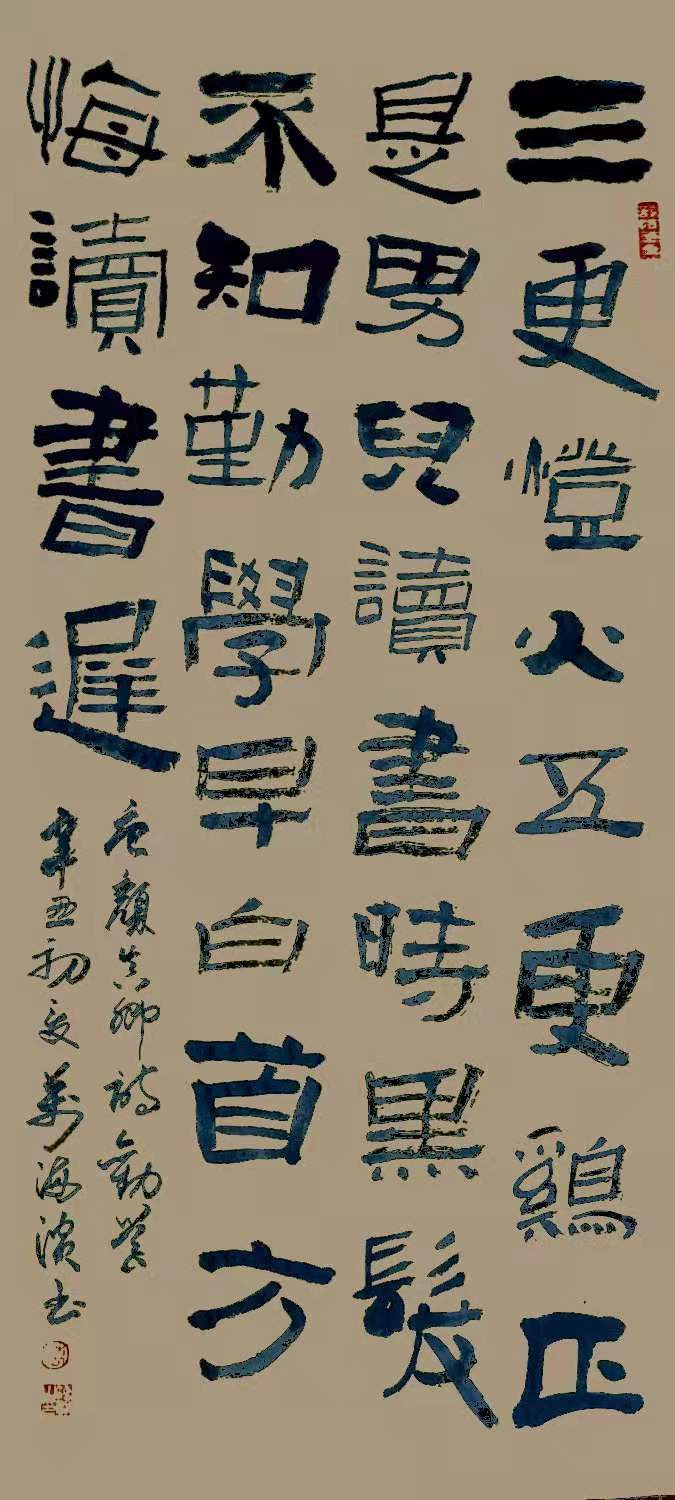 三更愷火五更鷄正
是男兒讀書時黑髮
不知勤學早白首方
悔讀書遲
唐顏真卿詩勸學
辛丑初夏萬海濱書